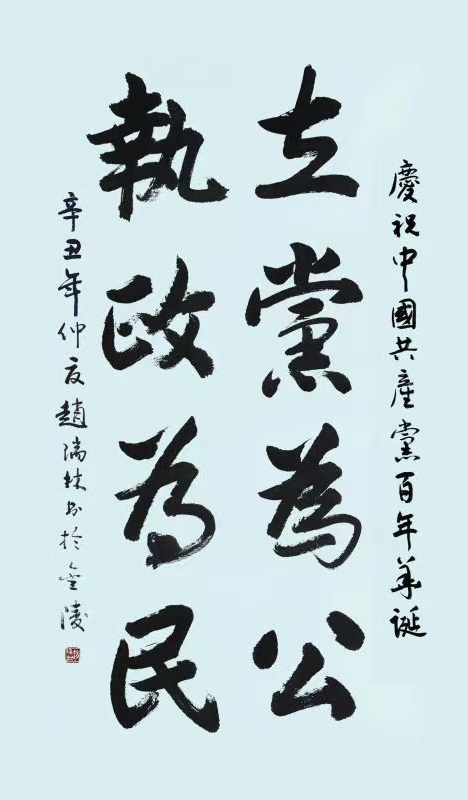 慶祝中國共產黨百年華誕
立黨為公
執政為民
辛丑年仲夏趙瑞林書於金陵